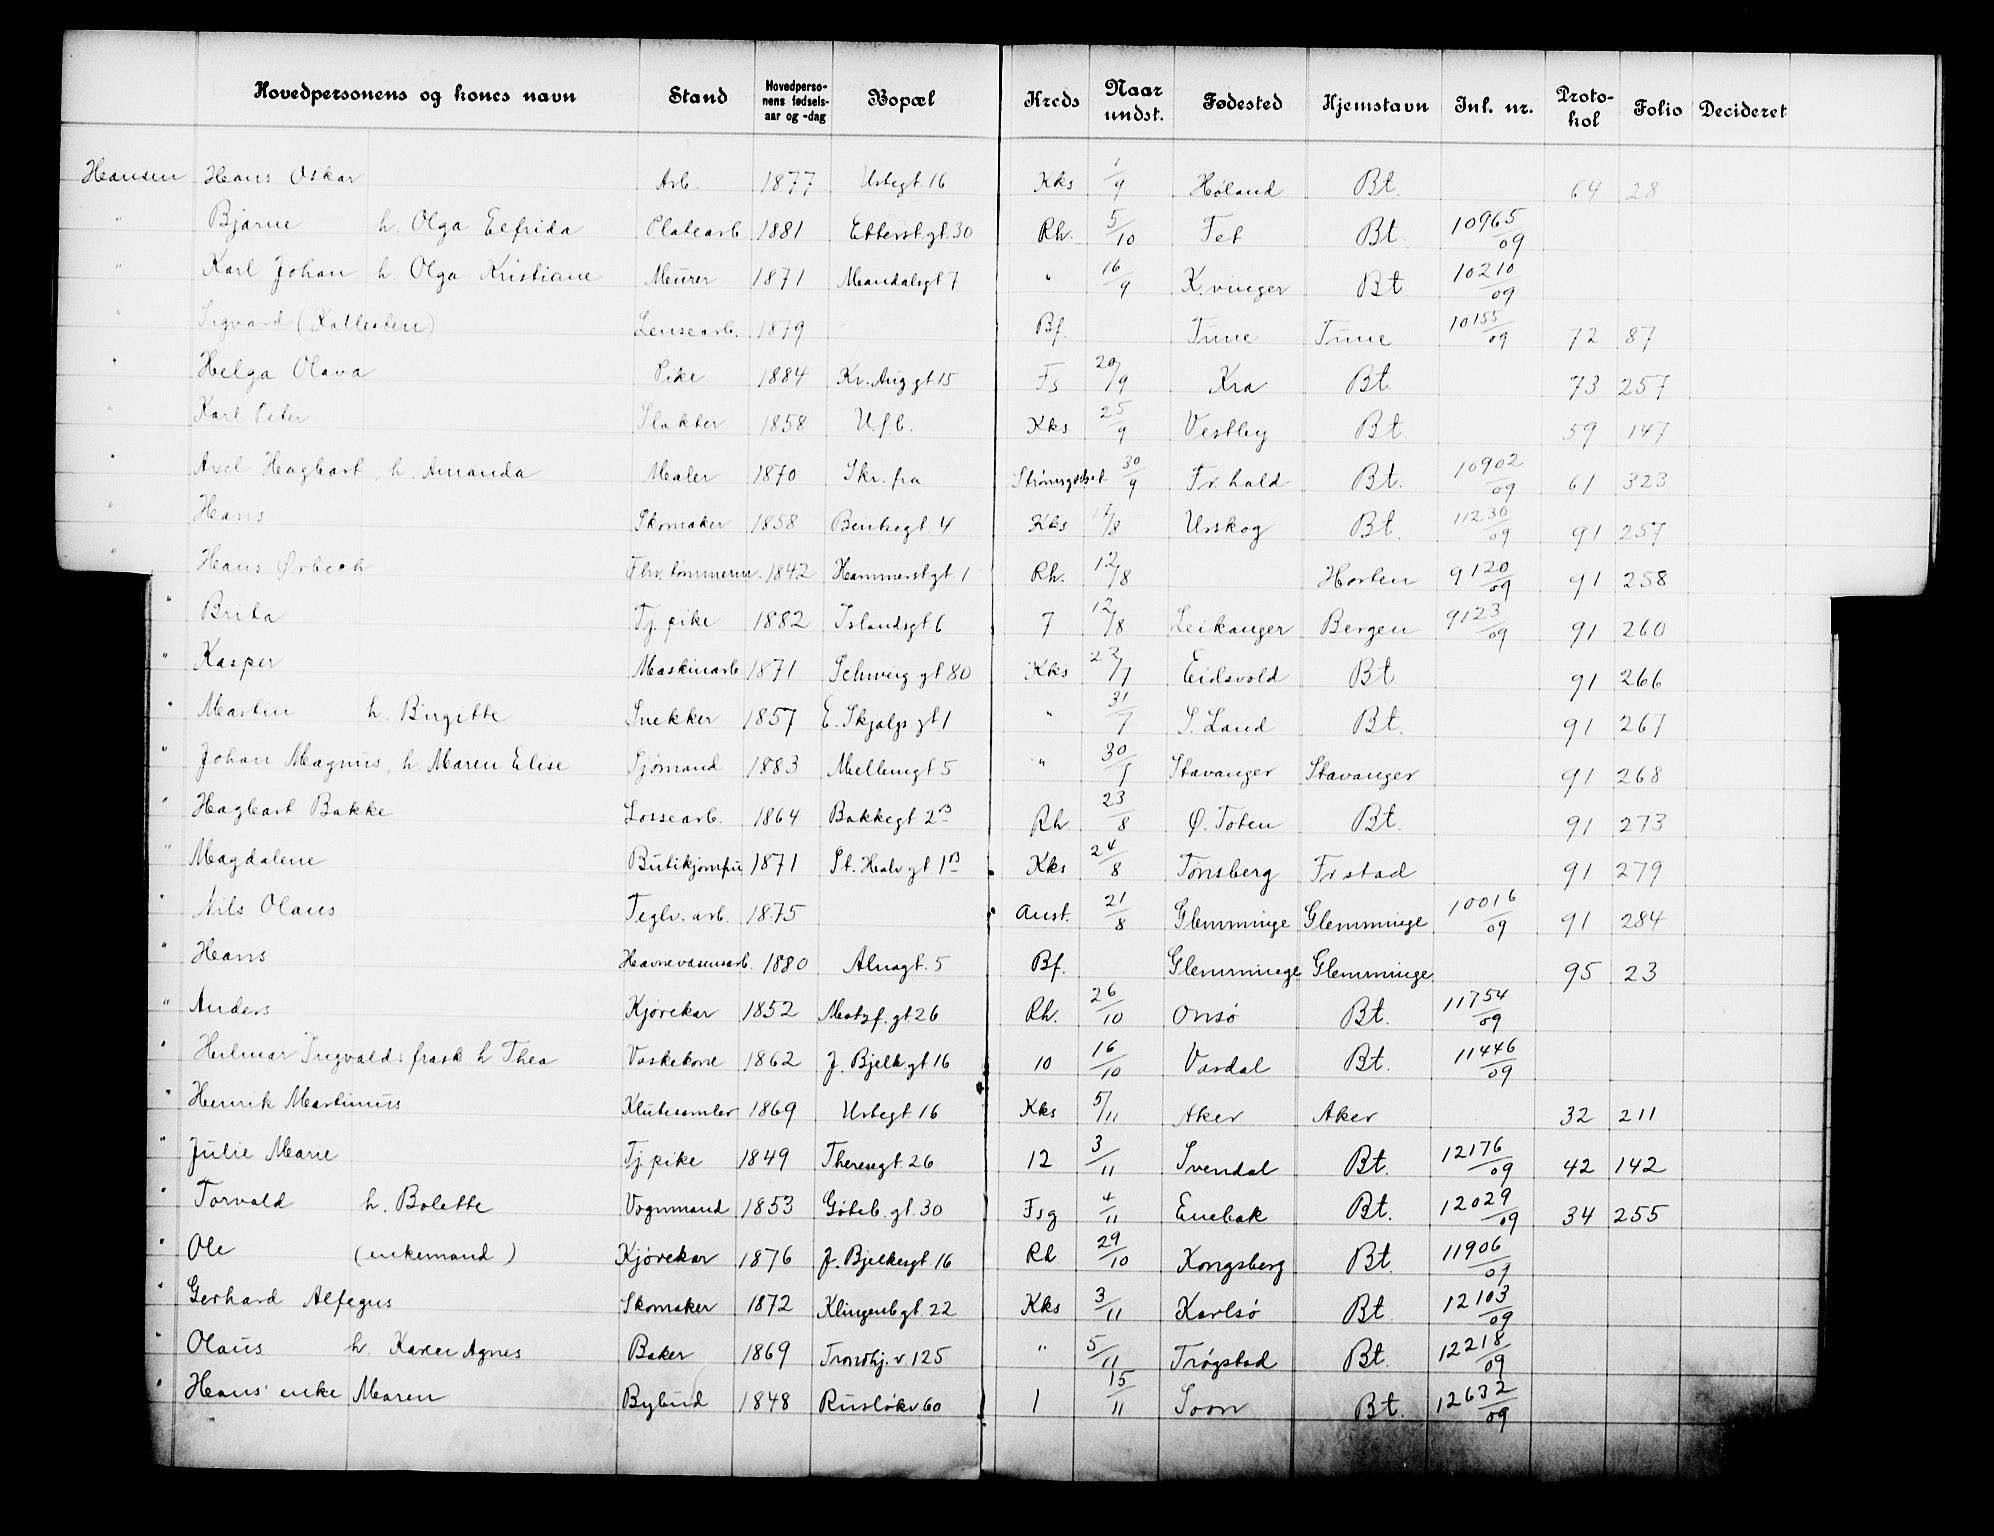 Hovedpersonens og kones navn Stand Hovedpersonens fødselsaar og -dag Bopæl Kreds Naar undst. Fødested Hjemstavn Inl. nr. Protokol Folio Decideret
Hansen Hans Oskar Arb. 1877 Urtegt 16 Kks 1/9 Høland Bt. 64 28
" Bjarne h. Olga Elfrida Platearb 1881 Etterst.gt. 30 Rh. 5/10 Fet Bt. 10965/09
" Karl Johan h. Olga Kristiane Murer 1871 Mandalsgt 7 " 16/9 K.vinger Bt 10210/09
" Sigvard (Kallesten) Lensearb. 1879 Bf. Tune Tune 10155/09 72 87
" Helga Olava Pike 1884 Kr. Aug gt 15 Fs 20/9 Kra Bt. 73 257
" Karl Peter Slakter 1858 U.f.b. Kks 25/9 Vestby Bt. 59 147
" Axel Hagbart, h. Amanda Maler 1870 Skr. fra Strømsgodset 30/9 Fr.hald Bt. 10902/09 61 323
" Hans Skomaker 1858 Bentsegt. 4 Kks 12/8 Urskog Bt. 11230/09 91 257
" Hans Ørbech Fhv. tømmerm. 1842 Hammerst.gt. 1 Rh. 12/8 Horten 9120/09 91 258
" Brita Tj. pike 1882 Islandsgt 6 7 12/8 Leikanger Bergen 9123/09 91 260
" Kasper Maskinarb 1871 Schweig gt 80 Kks 22/7 Eidsvold Bt 91 266
" Martin h. Birgitte Snekker 1857 E. Skjalgs gt 1 " 31/7 S. Land Bt. 91 267
" Johan Magnus, h. Maren Elise Sjømand 1883 Mellemgt 5 " 30/ Stavanger Stavanger 91 268
" Hagbart Bakke Lossearb. 1864 Bakkegt 2B Rh 23/8 Ø. Toten Bt. 91 273
" Magdalene Butikjomfru 1871 St. Halv gt 1B Kks 24/8 Tønsberg Frstad 91 279
" Nils Olaus Teglv. arb. 1875 Anst. 21/8 Glemminge Glemminge 10016/09 91 284
" Hans Havnevæsensarb. 1880 Alnagt. 5 Bf. Glemminge Glemminge 95 23
" Anders Kjørekar 1852 Motzf. gt 26 Rh. 26/10 Onsø Bt. 11754/09
" Hilmar Ingvalds frask h. Thea Vaskekone 1862 J. Bjelk. gt 16 10 16/10 Vardal Bt. 11446/09
" Henrik Martinius Klutesamler 1869 Urtegt 16 Kks 5/11 Aker Aker 32 211
" Julie Marie Tj. pike 1849 Theresgt. 26 12 3/11 Svendal Bt. 12176/09 42 142
" Torvald h. Bolette Vognmand 1853 Gøteb. gt. 30 Fsg 4/11 Enebak Bt. 12029/09 34 255
" Ole (enkemand) Kjørekar 1876 J. Bjelkesgt 16 Rh 29/10 Kongsberg Bt. 11906/09
" Gerhard Alfegus Skomaker 1872 Klingenb gt. 22 Kks 3/11 Karlsø Bt. 12103/09
" Olaus h. Karen Agnes Baker 1869 Trondhj. v. 125 " 5/11 Trøgstad Bt. 12218/09
" Hans' enke Maren Bybud 1848 Ruseløkv 60 1 15/11 Soon Bt. 12632/09